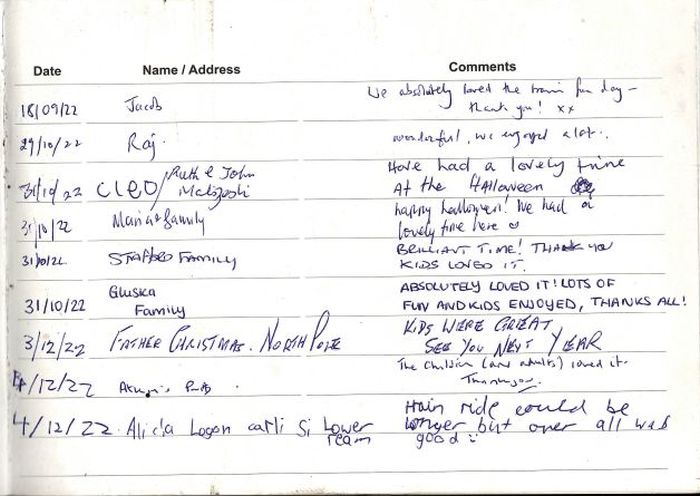 Date Name / Address Comments
18/09/22 Jacob We absolutely loved the train fun day -
thank you! xx
29/10/22 Raj. wonderful, we enjoyed a lot.
31/10/22 CLEO / Ruth & John Have had a lovely time
At the Halloween
31/10/22 Maria & family happy halloween! We had a
lovely time here
31/10/22 STAFFORD FAMILY BRILLIANT TIME! THANK YOU
KIDS LOVED IT.
31/10/22 Gluska ABSOLUTELY LOVED IT! LOTS OF
Family FUN AND KIDS ENJOYED, THANKS ALL!
3/12/22 FATHER CHRISTMAS. NORTH POLE KIDS WERE GREAT
SEE YOU NEXT YEAR
4/12/22 The children (and adults) loved it.
Thankyou.
4/12/22 Alicia Logan carli Si Lower train ride could be
longer but over all was
good :)